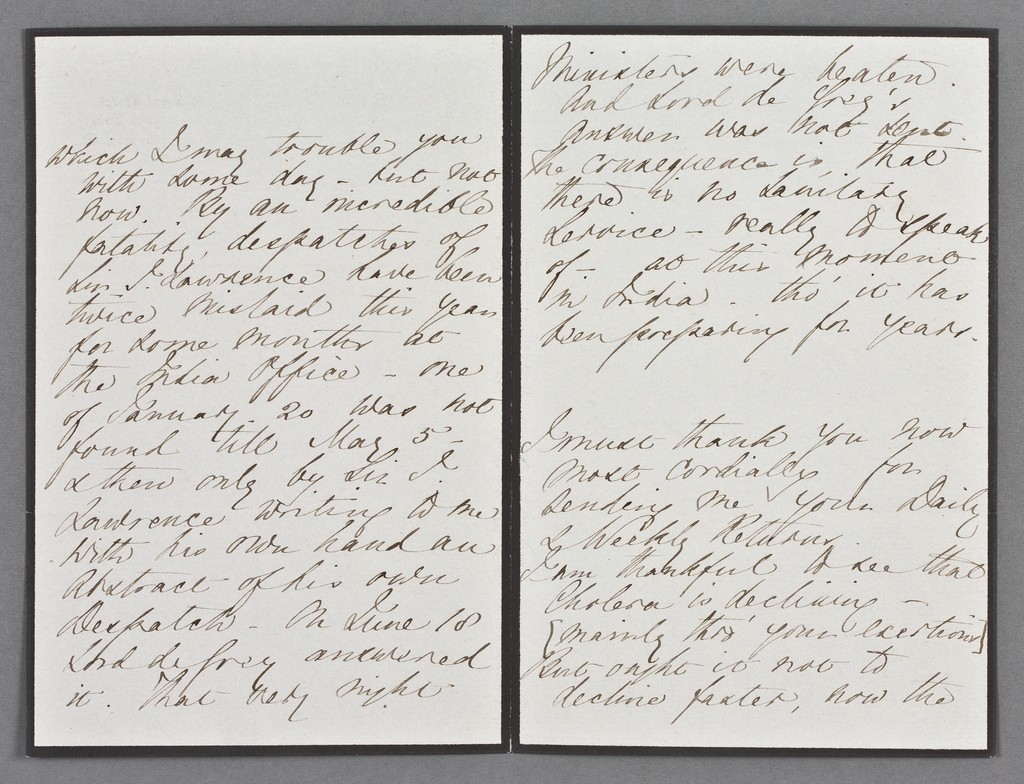 which I may trouble you
with some day - but not
now. By an incredible
fatality, despatches of
Sir J. Lawrence have been
twice mislaid this year
for some months at
the India Office - one
of January 20 was not
found till May 5 -
& then only by Sir J.
Lawrence writing to me
with his own hand an
abstract of his own
Despatch - On June 18
Lord de Grey answered
it. That very night
Ministers were beaten.
And Lord de Grey's
answer was not sent.
The consequence is that
there is no Sanitary
Service - really to speak
of - at this moment
in India - tho' it has
been preparing for years.
I must thank you now
most cordially for
sending me your Daily
& Weekly Returns.
I am thankful to see that
Cholera is declining -
[mainly thro' your exertions]
But ought it not to
decline faster, now the